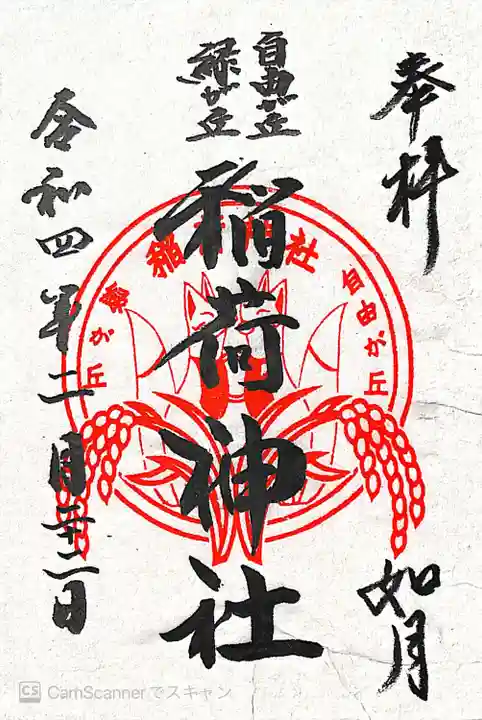 奉拝
自由が丘
緑が丘
稲荷神社
如月
令和四年二月二十二日
自由が丘
緑が丘
稲荷神社
CS CamScannerでスキャン